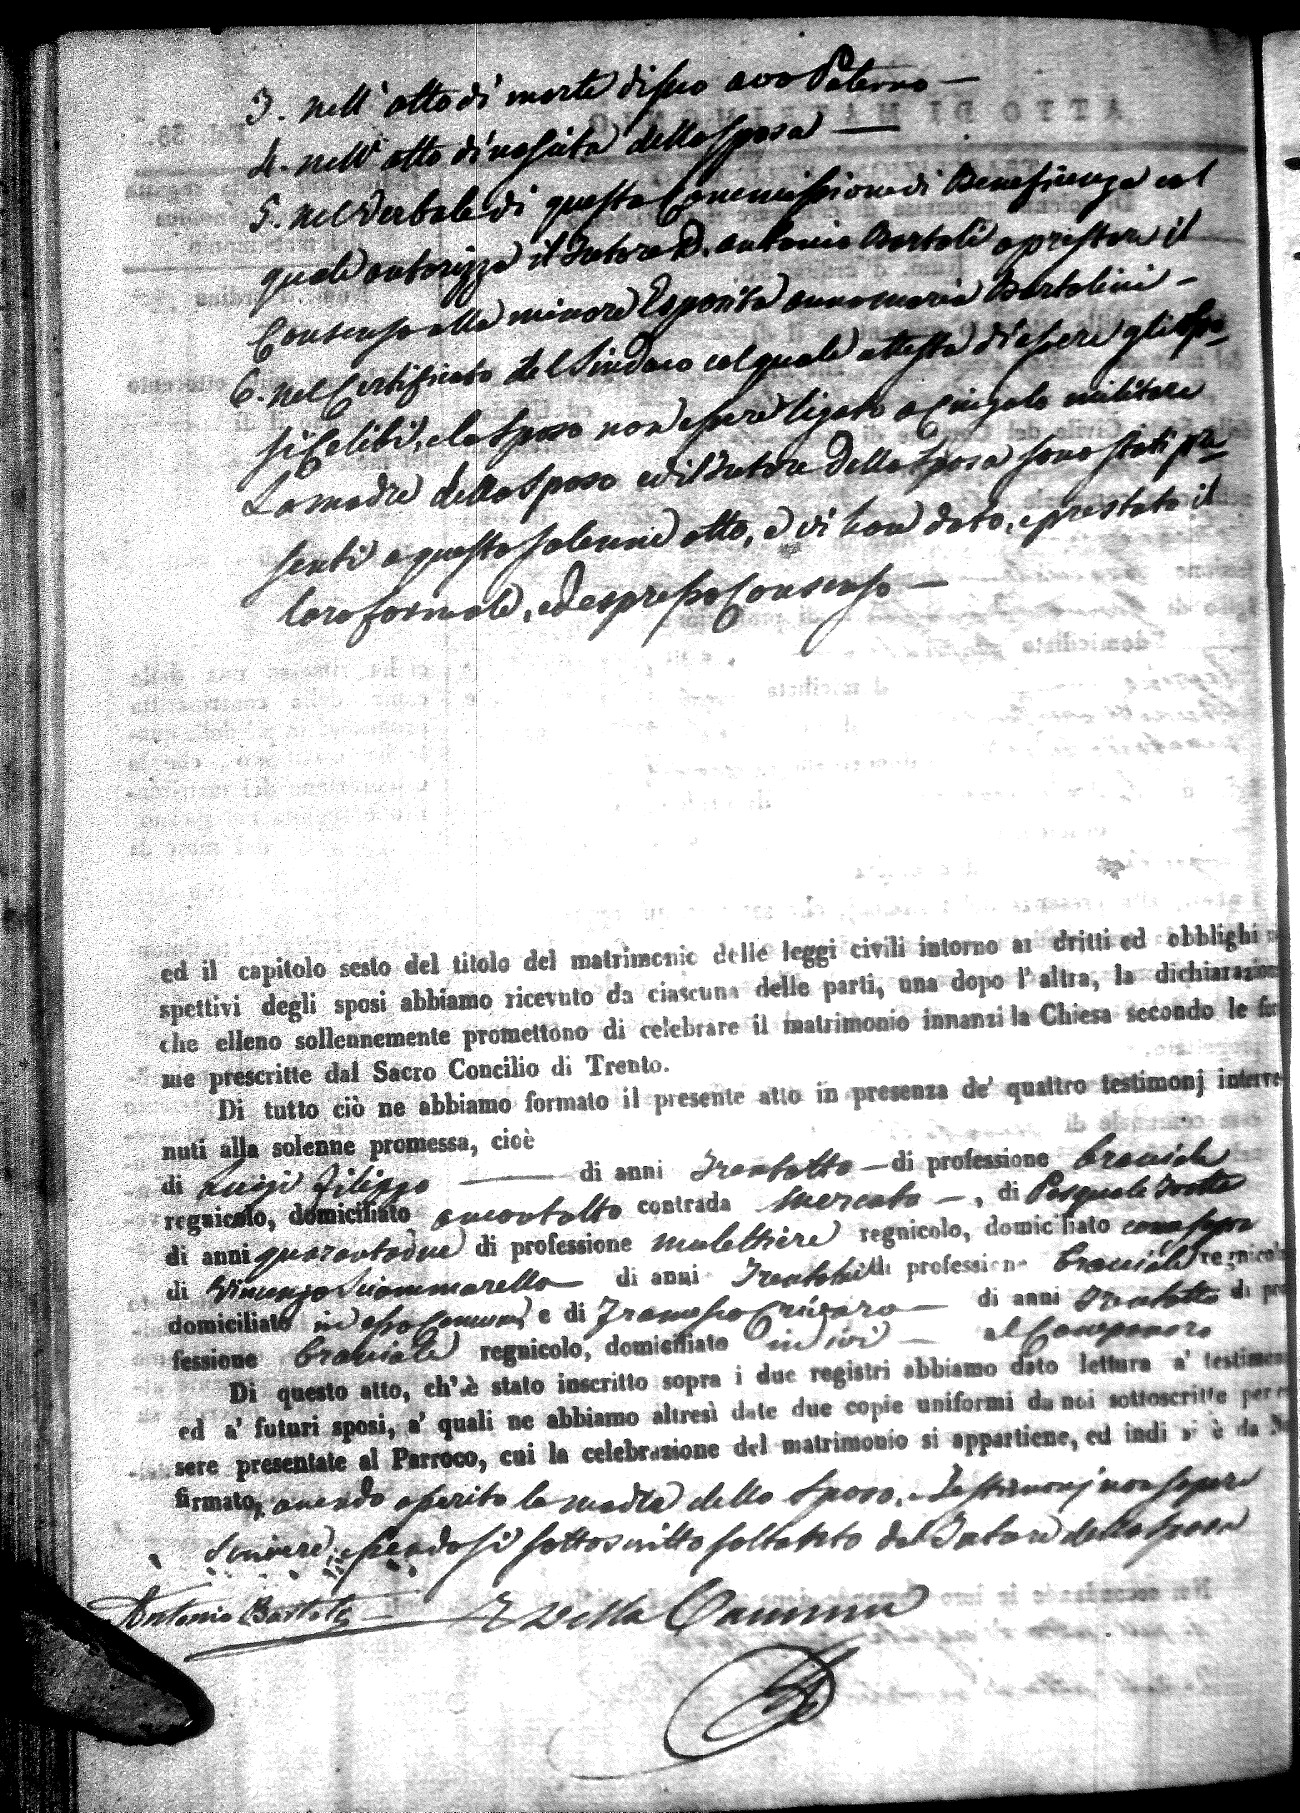 3. nell'atto di morte di suo avo Paterno —
4. nell'atto di nascita della sposa —
5. nel verbale di questa Commissione di Beneficenza col
quale autorizza il Tutore D. Antonio Bartoli a prestare il
Consenso alla minore Esposita Annamaria Bartolini —
6. nel Certificato del Sindaco col quale attesta di essere gli spo-
si Celibi, e lo sposo non essere ligato a Cingolo militare
La madre dello sposo ed il Tutore della sposa sono stati pre-
senti a questo solenne atto, e vi han dato, e prestato il
loro formale, ed espresso Consenso —
ed il capitolo sesto del titolo del matrimonio delle leggi civili intorno ai dritti ed obblighi
spettivi degli sposi abbiamo ricevuto da ciascuna delle parti, una dopo l'altra, la dichiarazion
che elleno sollennemente promettono di celebrare il matrimonio innanzi la Chiesa secondo le for
me prescritte dal Sacro Concilio di Trento.
Di tutto ciò ne abbiamo formato il presente atto in presenza de' quattro testimonj interve
nuti alla solenne promessa, cioè
di Luigi Filippo — di anni Trentotto — di professione bracciale
regnicolo, domiciliato contrada Mercato —, di Pasquale
di anni quarantadue di professione mulettiere regnicolo, domiciliato come sopra
di Vincenzo Sciammarella di anni di professione bracciale regnicolo
domiciliato in esso Comune e di Francesco — di anni trentotto di pro
fessione bracciale regnicolo, domiciliato in ivi — al
Di questo atto, ch'è stato inscritto sopra i due registri abbiamo dato lettura a' testimon
ed a' futuri sposi, a' quali ne abbiamo altresì date due copie uniformi da noi sottoscritte per es
sere presentate al Parroco, cui la celebrazione del matrimonio si appartiene, ed indi si è da No
firmato, avendo asserito la madre dello sposo, e Testimonj non sapere
scrivere, essendosi sottoscritto soltanto dal Tutore della sposa
Antonio Bartoli — Della